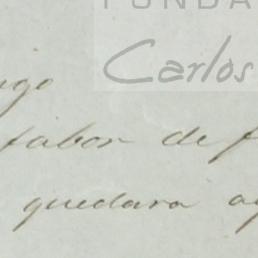 FUNDA
Carlos
igo
fabor de f
quedara ag